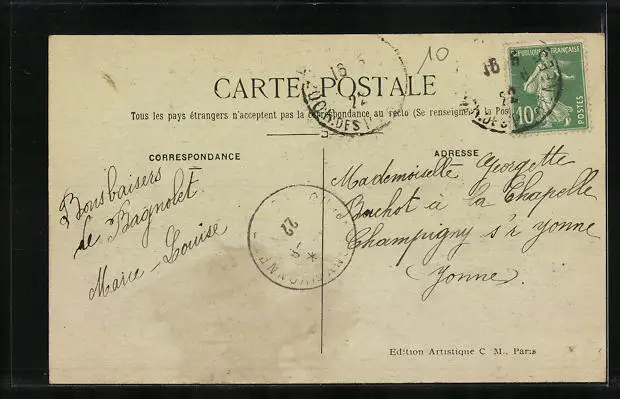 10
RÉPUBLIQUE FRANÇAISE
10c
POSTES
CARTE POSTALE
Tous les pays étrangers n'acceptent pas la correspondance au recto (Se renseigner à la Poste)
CORRESPONDANCE
Bons baisers
de Bagnolet
Marie-Louise
ADRESSE
Mademoiselle Georgette
Buchot à la Chapelle
Champigny s/r Yonne
(Yonne)
22
Edition Artistique C M., Paris